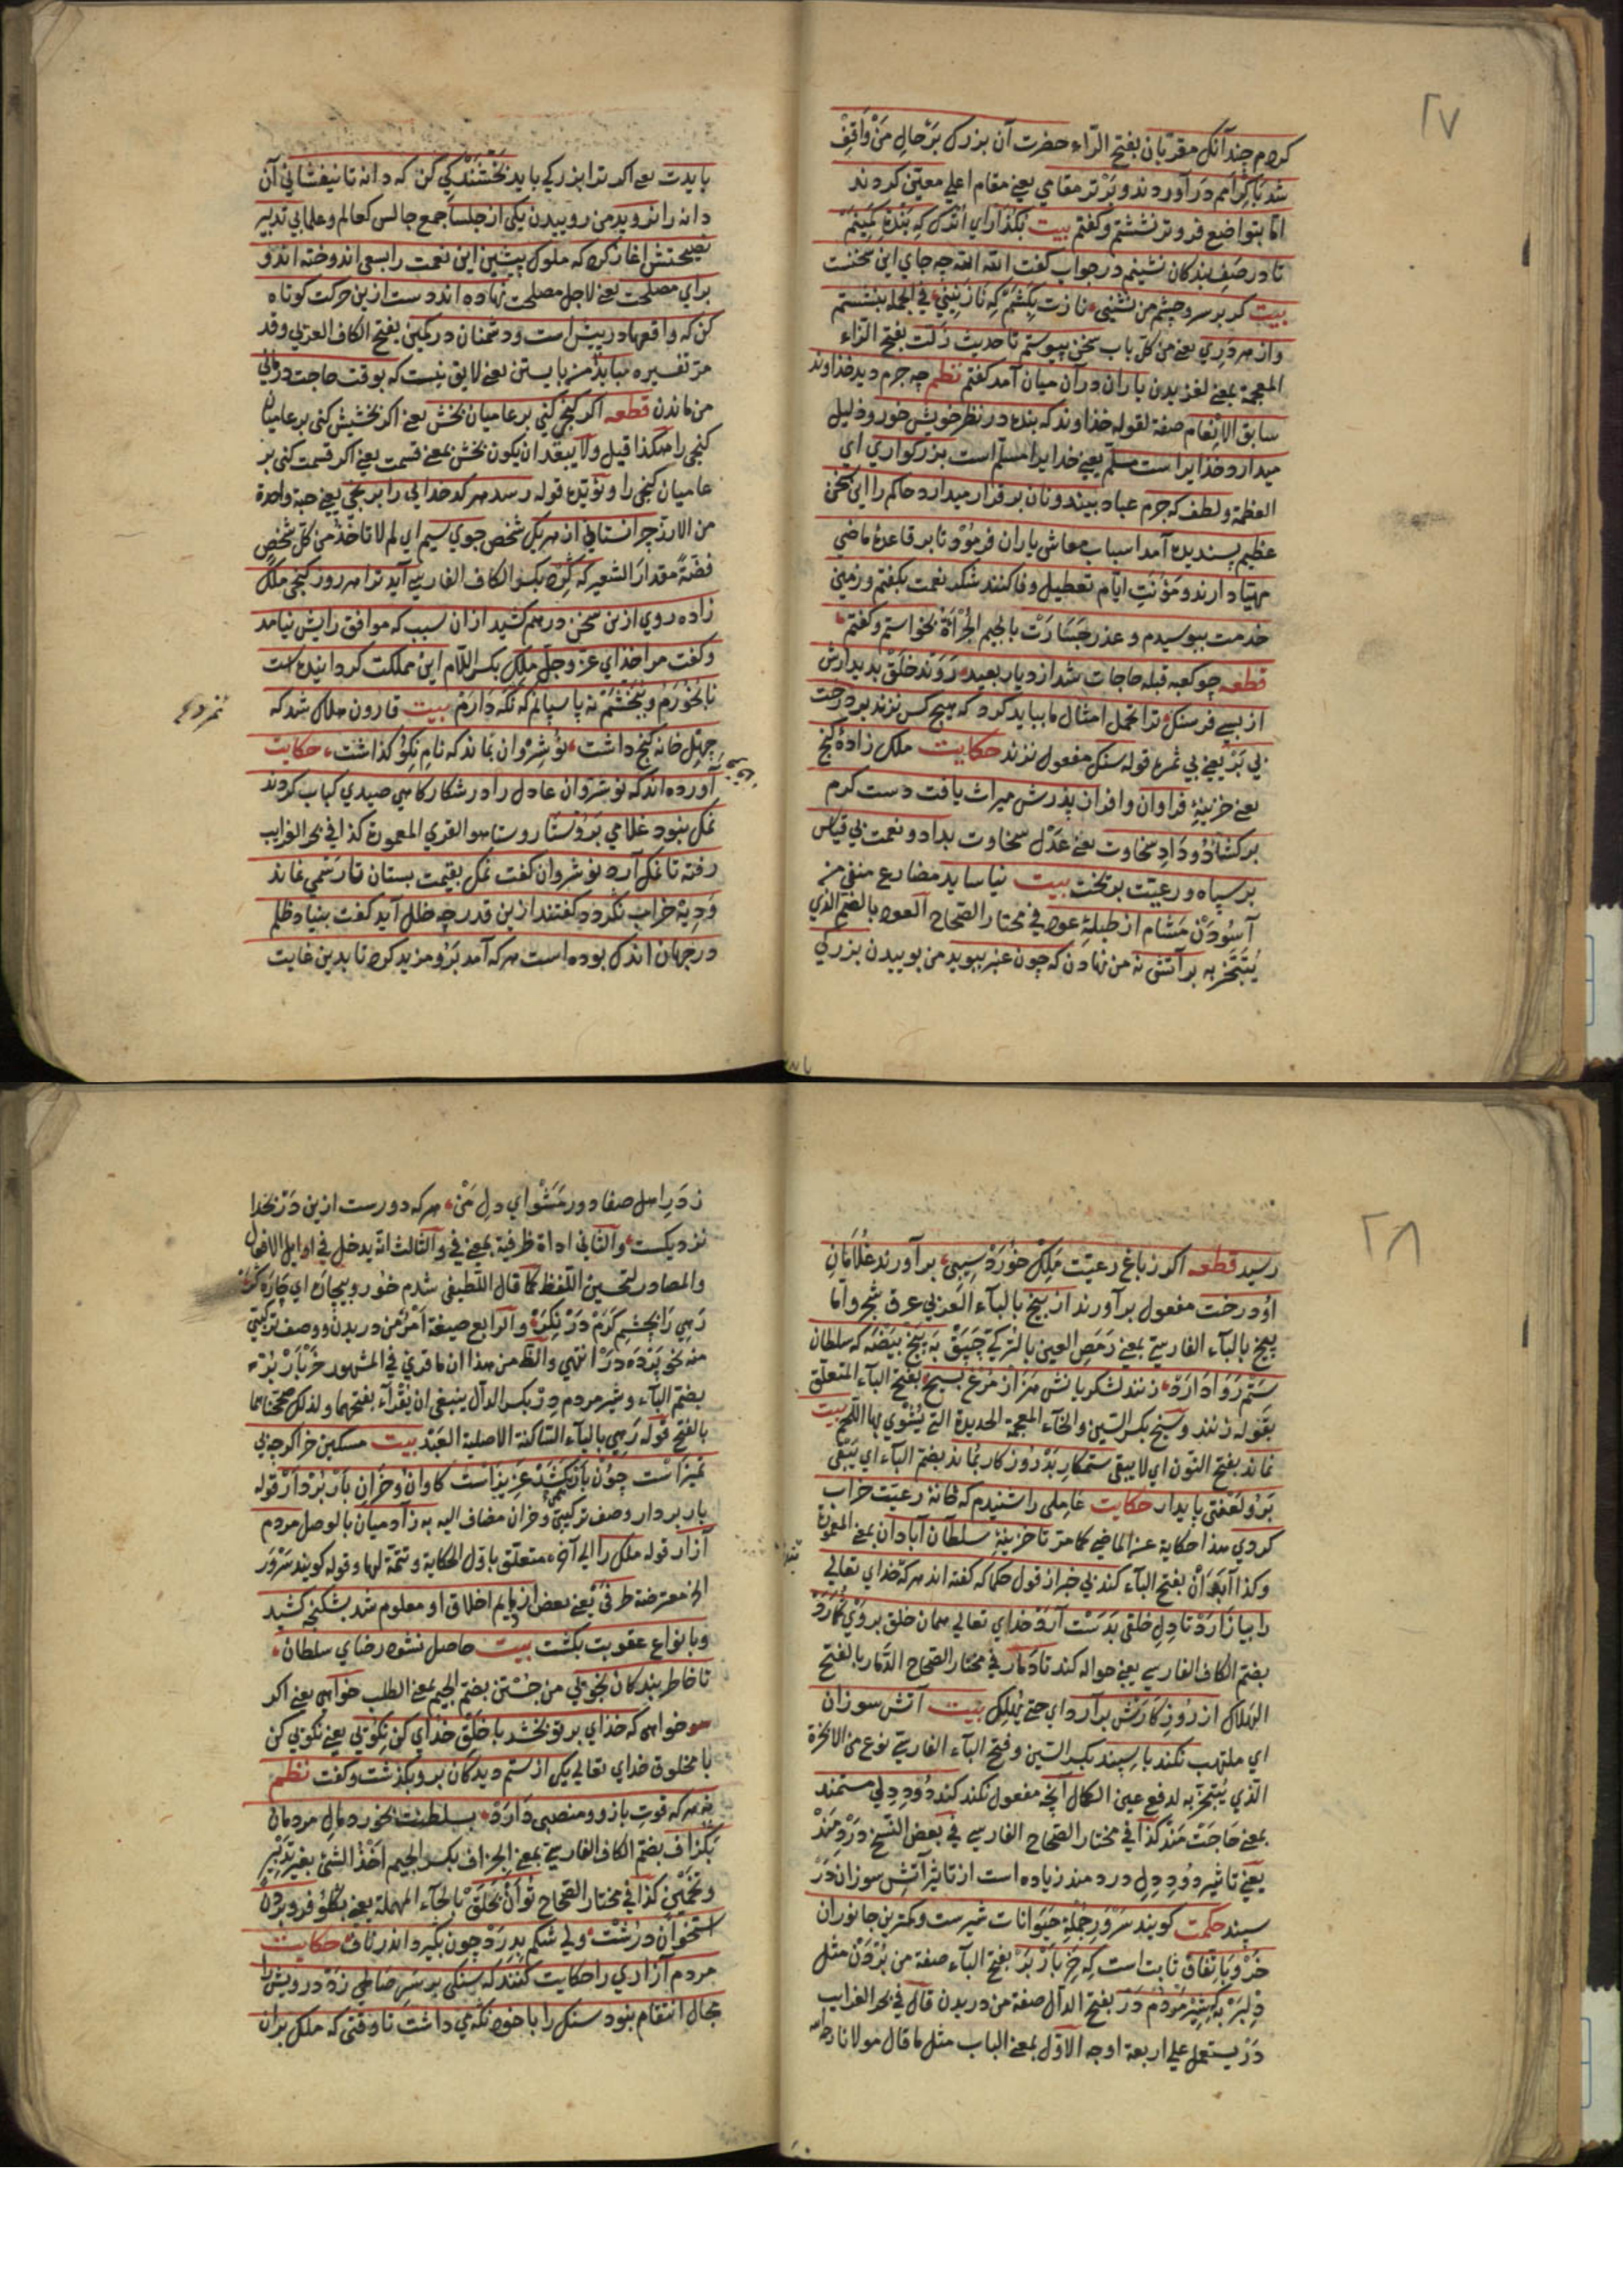 ٢٧
كردم چندانكه مقربان بفتح الرّاء حضرت آن بزرك بَرْحالِ مَنْ وَاقِفْ
شد با كرامم در آوردند و بَرْتر مقامي يعني مقام اعلي معين كردند
امّا بتواضع فروتر نشستم وكفتم بيت بكذار اي اندك كه بَنْدَهٔ كمينم
تا در صف بندكان نشينم در جواب كفت الله الله چه جاي اين سخنست
بيت كر بر سر و چشم من نشيني نازت بِكَشَمْ كه نازنيني في الجمله بنشستم
واز هر دري يعني من كل باب سخن پيوستم تا حديث زَلّت بفتح الزاء
المعجمة بمعني لغزيدن ياران در آن ميان آمد كفتم نظم چه جرم ديد خداوند
سابق الانعام صفة لقوله خداوند كه بنده در نظر خويش خور و ذليل
ميدارد خدايراست مسلّم يعني خدايرا مسلم است بزركواري اي
العظمة ولطف كه جرم عباد بيند ونان برقرار ميدارد حاكم را اين سخن
عظيم پسنديده آمد اسباب معاش ياران فرمُود تا بر قاعدهٔ ماضي
مهيّا دارند و مَؤنَتِ ايّام تعطيل وفا كنند شكر نعمت بكفتم و زمين
خدمت ببوسيدم و عذر جَسَارَتْ بالجيم الجُرْأَة بخواستم وكفتم
قطعه چو كعبه قبله حاجات شد از ديار بعيد رَوَنْد خَلْق بديدارش
از بسي فرسنك ترا تحمل امثال ما ببايد كرد كه هيچ كس نزند بر درخت
بي بَرْ يعني بي ثمره قوله سنك مفعول نزند حكايت ملك زادهٔ كنج
يعني خزينهٔ فراوان وافر از پدرش ميراث يافت دست كرم
بركشاد و دادِ سخاوت يعني عَدْل سخاوت بداد و نعمت بي قياس
بر سپاه و رعيّت بريخت بيت نياسايد مضارع منفي من
آسُودَنْ مشام از طبلهٔ عود في مختار الصحاح العود بالضم الذي
يُتَبَخَّر به بر آتش نه من نهادن كه چون عنبر ببويد من بوييدن بزركي
بايدت يعني اكر ترا بزركي بايد بَخْشَنْدكي كن كه دانه تا نيفشاني آن
دانه را نرويد من روييدن يكي از جلسا جمع جالس كعالم وعلما بي تدبير
نصيحتش آغاز كرد كه ملوك پيشين اين نعمت را بسعي اندوخته اند و
براي مصلحت يعني لاجل مصلحت نهاده اند دست ازين حركت كوتاه
كن كه واقعها در پيش است ودشمنان در كمين بفتح الكاف العربي وقد
مر تفسيره نبايد من بايستن يعني لايق نيست كه بوقت حاجت درماني
من ماندن قطعه اكر كنجي كني بر عاميان بخش يعني اكر بخشش كني بر عاميان
كنجي را هكذا قيل ولا يبعد ان يكون بخش بمعني قسمت يعني اكر قسمت كني بر
عاميان كنجي را ونؤيده قوله رسد هر كدخدايي را برنجي يعني حبة واحدة
من الارز چرا نستاني از هر يك شخص جوي سيم اي لم لا تأخذ من كل شخصٍ
فضّةً مقدارَ الشعير كه كِرْد بكسر الكاف الفارسي آيد ترا هر روز كنجي ملك
زاده روي ازين سخن در هم كشيد از آن سبب كه موافق رايش نيامد
وكفت مرا خداي عزّ وجل مَلِكِ بكسر اللام اين مملكت كردانيده است
تا بخُورَم وببَخْشَمْ نه پاسبانم كه نكه دَارَمْ بيت قارون هلاك شد كه
نمرد ع
چهل خانه كنج داشت نُوشِرْوان نماند كه نامِ نِكُو كذاشت حكايت
آورده اند كه نوشروان عادل را در شكار كاهي صيدي كباب كردند
نمك نبود غلامي بَرُوسْتا روستا هو القري المعمورة كذا في بحر الغرايب
رفته تا نمك آرد نوشروان كفت نمك بقيمت بستان تا رسمي نماند
و دِيهْ خراب نكردد كفتند ازين قدر چه خلل آيد كفت بنياد ظلم
در جهان اندك بوده است هر كه آمد بَرُو مزيد كرد تا بدين غايت
٢٨
رسيد قطعه اكر ز باغِ رعيّت مَلِكْ خُورَدْ سيبي بر آورند غُلامانِ
اُو درخت مفعول بر آورند از بيخ بالباء العربي عرق شجر وامّا
پيخ بالباء الفارسي بمعني رَمَصِ العين بالتركي چَپَقْ به پنج بيضه كه سلطان
سَتَم رَوَا دَارَد زنند لشكريانش هزار مُرغ بسيخ بفتح الباء المتعلق
بقوله زنند وسيخ بكسر السّين والخاء المعجمة الحديدة التي يُشْوي بها اللحم بيت
نماند بفتح النّون اي لا يبقي ستمكارِ بَدْ رُوزكار بماند بضم الباء اي يَبْقي
بَرُو لعنتِ پايدار حكايت عاملي را شنيدم كه خانهٔ رعيت خراب
كردي هذا حكاية عن الماضي كما مرّ تا خزينهٔ سلطان آبادان بمعني المعمورة
وكذا آبَدَانْ بفتح الباء كند بي خبر از قول حكما كه كفته اند هركه خداي تعالي
را بيازارَدْ تا دِلِ خلقي بَدَسْت آرَدْ خداي تعالي همان خلق بروي كمارد
بضم الكاف الفارسي يعني حواله كند تا دَمار في مختار الصحاح الدَّمار بالفتح
الهلاك از رُوزِ كارَش بر آرد اي حتي يُهلِك بيت آتش سوزان
اي ملتهب نكند با سپند بكسر السّين وفتح الباء الفارسي نوع من الابخرة
الذي يُتبخّر به لدفع عين الكمال آنچه مفعول نكند كند دُودِ دِلي مستمند
بمعني حَاجَتْ مَنْد كذا في مختار الصحاح الفارسي في بعض النسخ دَرْدمَنْد
يعني تاثير دُودِ دِلِ دردمند زياده است از تاثير آتشِ سوزان دَرْ
سپند حكمت كويند سَرْوَرِ جُمْلهٔ حَيَوانات شيرست وكمترين جانوران
خَرْ وَبا تفاق ثابت است كه خرِ بارْ بَرْ بفتح الباء صفة من بُرْدَن مثل
دِلْبَرْ به كه شيرِ مَرْدُم دَرْ بفتح الدال صفة من دريدن قال في بحر الغرايب
دَرْ يستعمل علي اربعة اوجه الاوّل بمعني الباب مثل ما قال مولانا رحمه
زِ دَرِ اهلِ صفا دور مَشَوْ اي دِلِ مَنْ هركه دورست ازين دَرْ بخدا
نزديكست والثاني اداة ظرفية بمعني في والثالث انه يدخل في اوايل الافعال
والمصادر لتحسين اللفظ كما قال اللطيفي شدم خور وبيچاره اي چاره كر
رَهِي را بچشمِ كَرَم دَرْ نِكَرْ والرابع صيغة امر من دريدن ووصف تركيبي
منه نحو پَرْدَه دَرْ انتهي والظ من هذا ان ما قرئ في المشهور خَرْ بارْ بُرْ به
بضم الباء وشير مردم دِر بكسر الدال ينبغي ان يقرأء بفتحهما ولذلك صحّحناهما
بالفتح قوله رَهِي بالياء الساكنة الاصلية العَبْد بيت مسكين خر اكرچه بي
تميزاست چون بارْ كَشَدْ عزيزاست كاوان وخَرانِ بارْ بَرْدَارْ قوله
بار بردار وصف تركيبي وخران مضاف اليه به ز آدميان بالوصل مردم
آزار قوله ملك را الي آخره متعلق باوّل الحكاية وتتمّة لها وقوله كويند سَرْوَر
الخ معترضة طرفي يعني بعض از ذمايم اخلاق او معلوم شد بشكنجه كشيد
وبانواع عقوبت بكشت بيت حاصل نشود رضاي سلطان
تا خاطر بندكان نجويي من جُسْتن بضم الجيم بمعني الطلب خواهي يعني اكر
خواهي كه خداي بر تو بخشد با خَلْقِ خداي كن نِكُويي يعني نكويي كن
با مخلوق خداي تعالي يكي از ستم ديدكان برو بكذشت وكفت نظم
نه هركه قوتِ بازو ومنصبي دَارَد بسلطنت بخورد مالِ مردمان
بكزاف بضم الكاف الفارسي بمعني الجزاف بكسر الجيم اخذ الشئ بغير تدبير
وتخمين كذا في مختار الصحاح تُوان بحَلَقْ بالحاء المهملة يعني بكلو فرو بردن
استخوانِ دُرُشْت ولي شكم بدِرَدْ چون بكيرد اندر ناف حكايت
مردم آزاري را حكايت كنند كه سنكي بر سرِ صالحي زد درويش را
مجال انتقام نبود سنك را با خود نكه مي داشت تا وقتي كه ملك بران